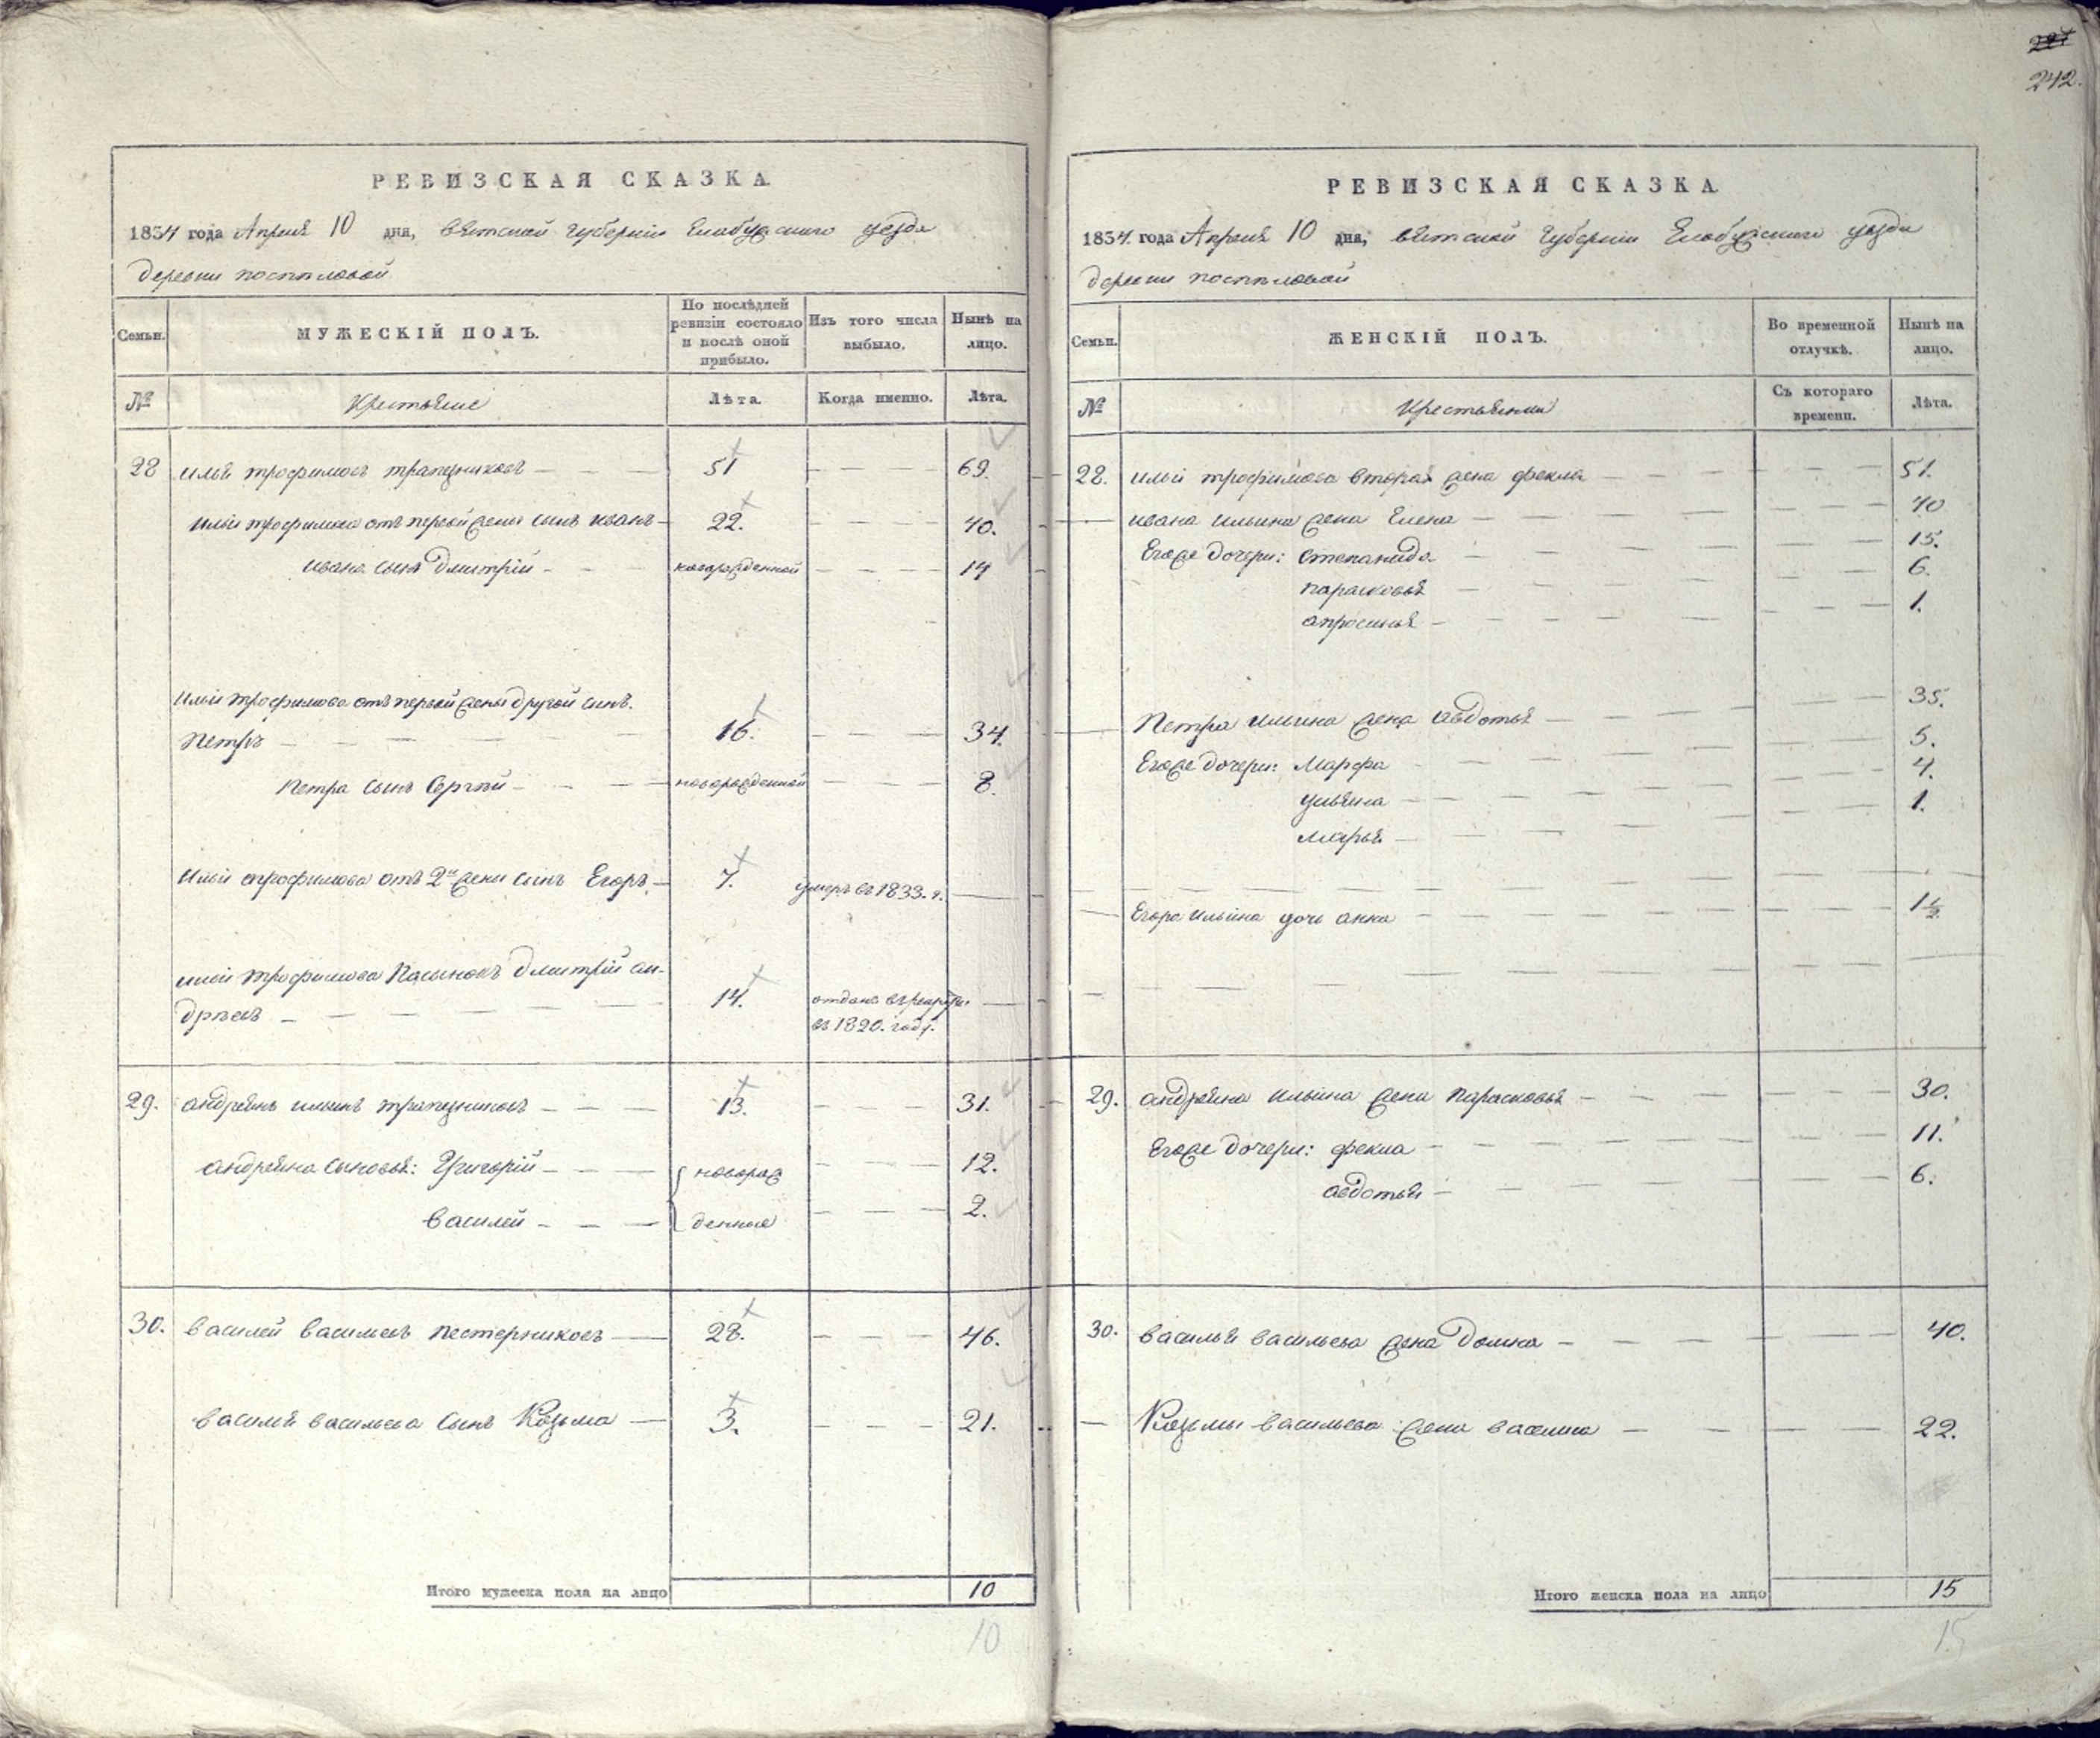 227
242.
РЕВИЗСКАЯ СКАЗКА.
1834 года Апреля 10 дня, вятской губернии Елабужского уезда
деревни поспѣловой
Семьи.
МУЖЕСКІЙ ПОЛЪ.
По послѣдней ревизіи состояло и послѣ оной прибыло.
Изъ того числа выбыло.
Нынѣ на лицо.
№
Крестьяне
Лѣта.
Когда именно.
Лѣта.
28 илья трофимовъ трапезниковъ 51 69.
ильи трофимова отъ первой жены сынъ иванъ 22. 40.
ивана сынъ дмитрій новорожденной 14
ильи трофимова отъ первой жены другой сынъ.
петръ 16. 34.
петра сынъ Сергѣй новорожденной 8.
ильи трофимова отъ 2й жены сынъ Егоръ 7. умеръ въ 1833. г.
ильи трофимова пасынокъ дмитрій ан-
дрѣевъ 14. отданъ въ рекруты.
въ 1820. году.
29. андреянъ ильинъ трапезниковъ 13. 31.
андреяна сыновья: Григорій новорож 12.
василей денные 2.
30. василей васильевъ пестерниковъ 28. 46.
василья васильева сынъ Козьма 3. 21.
Итого мужеска пола на лицо 10
10
РЕВИЗСКАЯ СКАЗКА.
1834. года Апреля 10 дня, вятской губернии Елабужского уезда
деревни поспѣловой
Семьи.
ЖЕНСКІЙ ПОЛЪ.
Во временной отлучкѣ.
Нынѣ на лицо.
№
Крестьянки
Съ котораго времени.
Лѣта.
28. ильи трофимова вторая жена фекла 51.
ивана ильина жена Елена 40
Егоже дочери: степанида 15.
парасковья 6.
апросинья 1.
Петра ильина жена авдотья 35.
Егоже дочери: Марфа 5.
ульяна 4.
марья 1.
Егора ильина дочь анна 1½
29. андреяна ильина жена парасковья 30.
Егоже дочери: фекла 11.
авдотья 6.
30. василья васильева жена домна 40.
Козьмы васильева жена василиса 22.
Итого женска пола на лицо 15
15